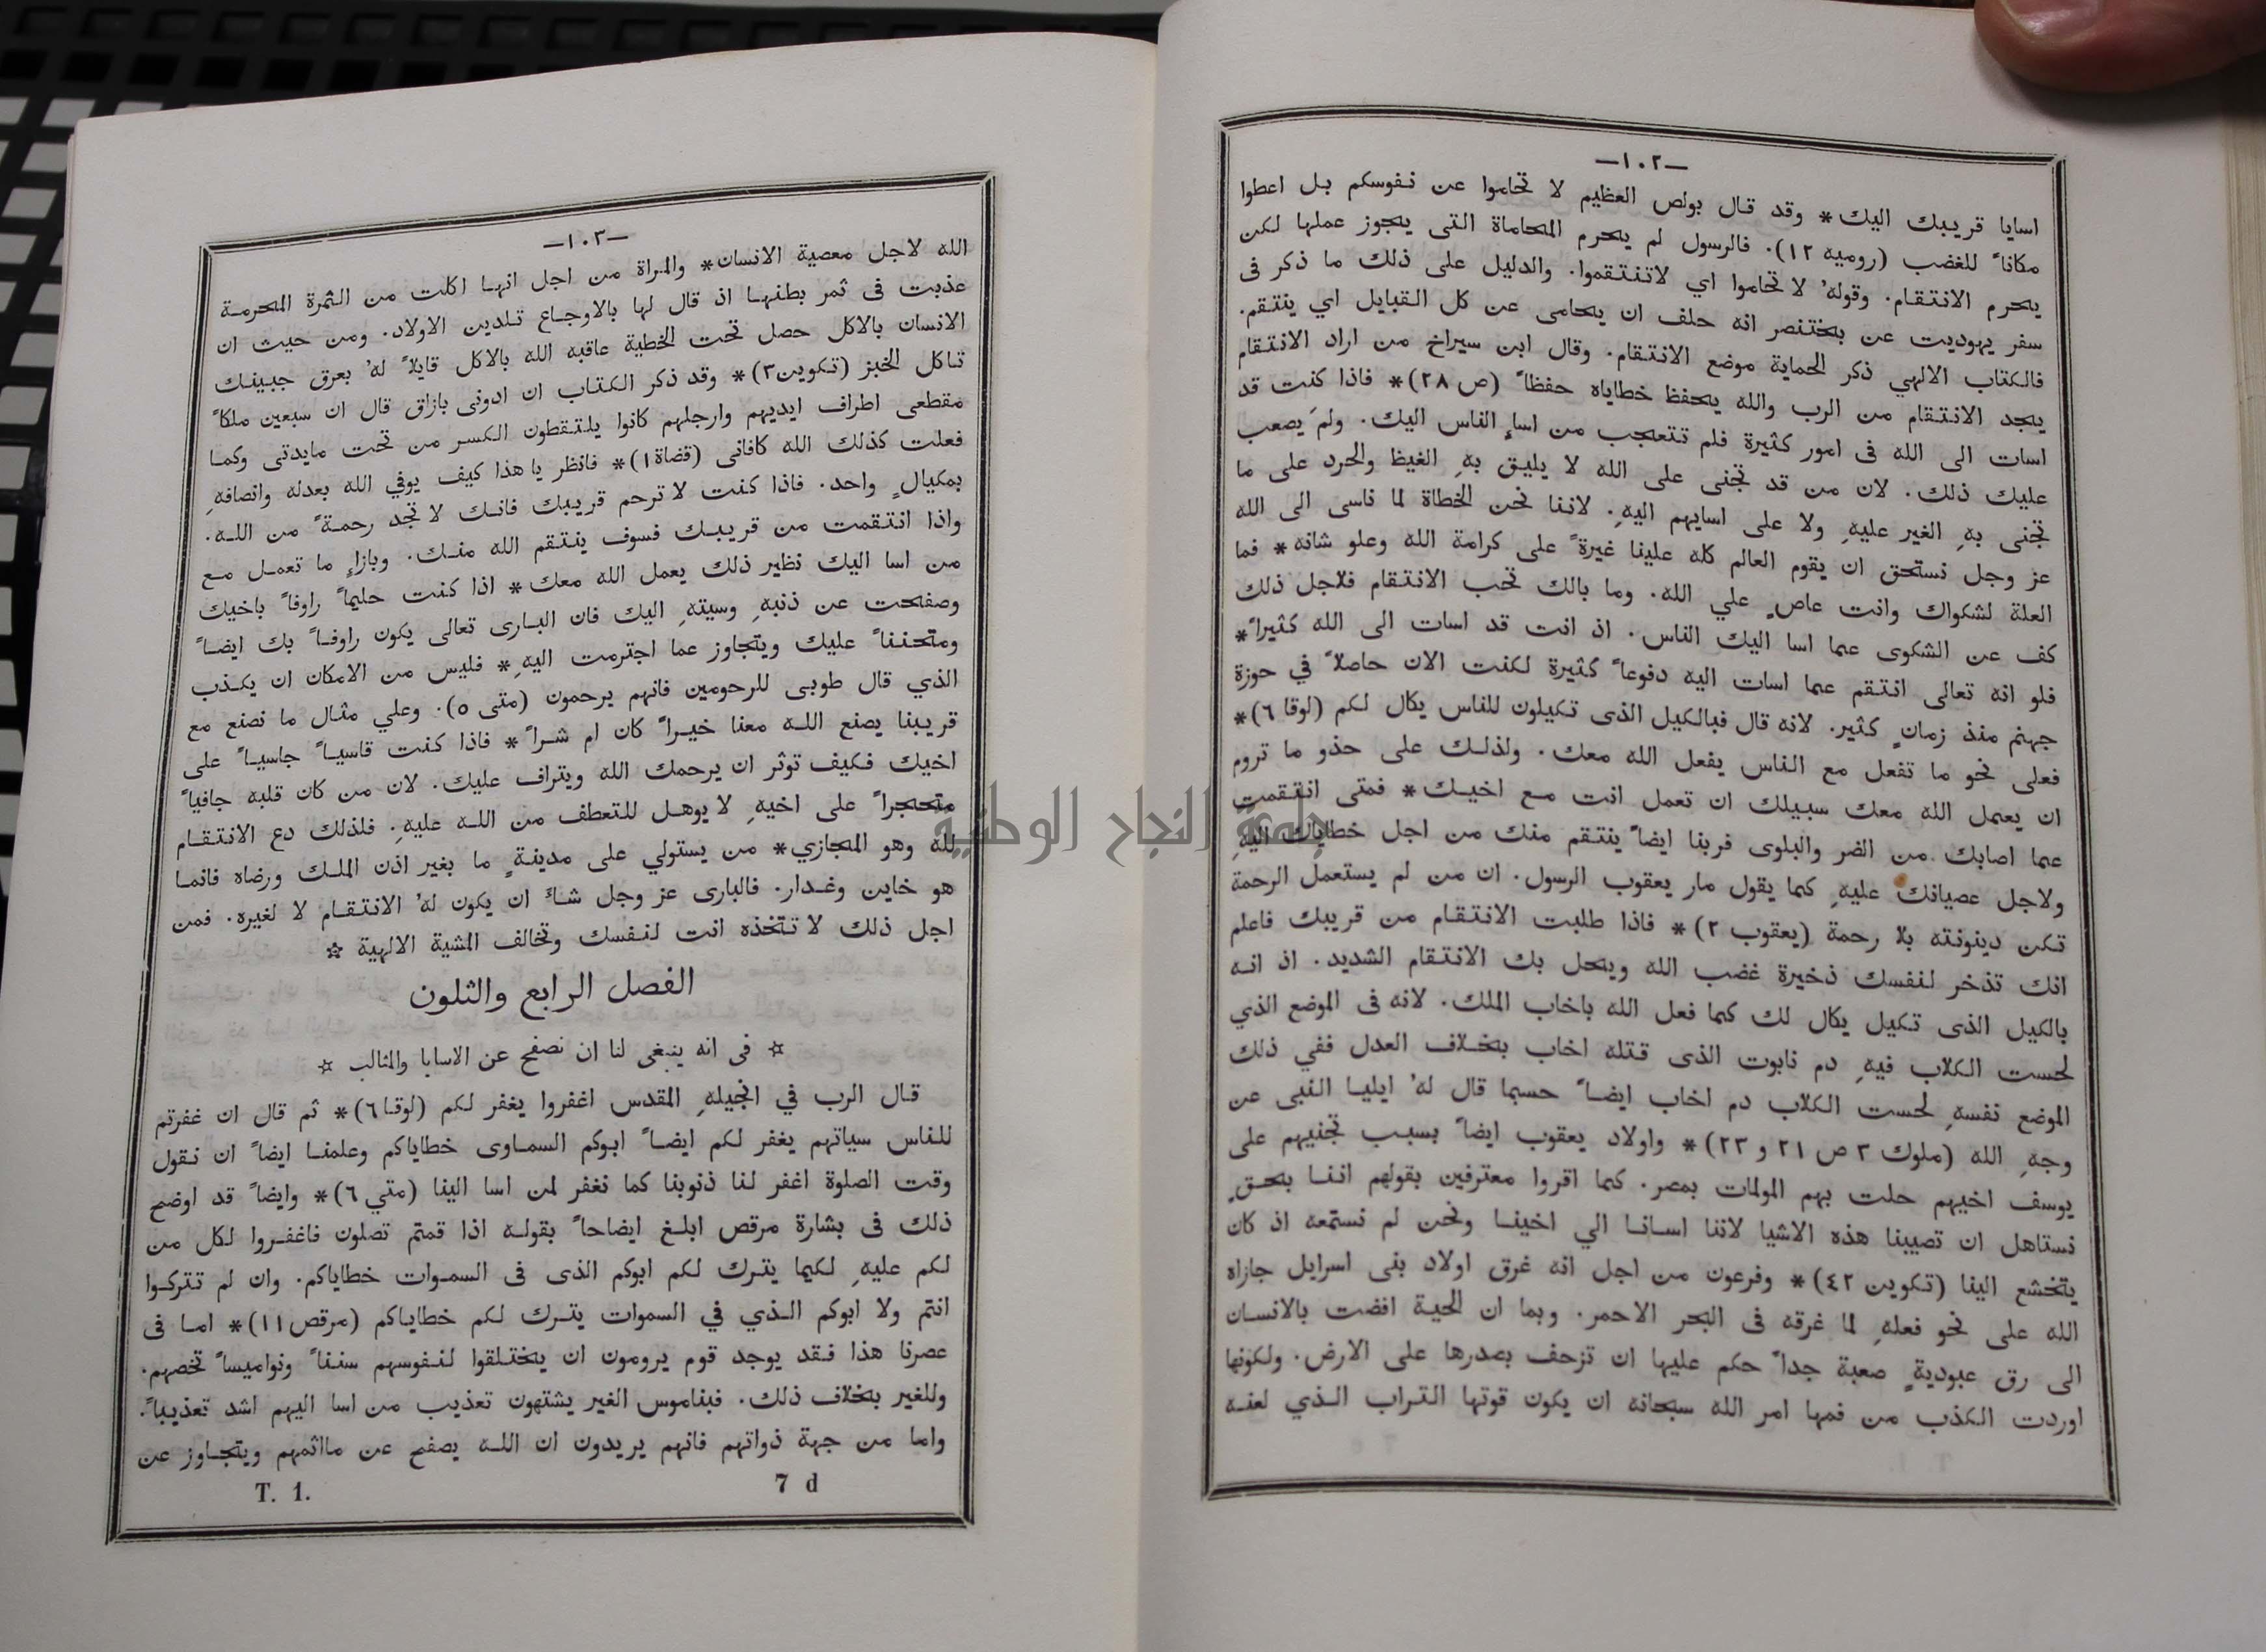 —١٠٢—
اسايا قريبك اليك* وقد قال بولص العظيم لا تحاموا عن نفوسكم بل اعطوا
مكاناً للغضب (روميه ١٢). فالرسول لم يحرم المحاماة التى يجوز عملها لكن
يحرم الانتقام. وقولهُ لا تحاموا اي لاتنتقموا. والدليل على ذلك ما ذكر فى
سفر يهوديت عن بختنصر انه حلف ان يحامى عن كل القبايل اي ينتقم.
فالكتاب الالهي ذكر الحماية موضع الانتقام. وقال ابن سيراخ من اراد الانتقام
يجد الانتقام من الرب والله يحفظ خطاياه حفظاً (ص ٢٨)* فاذا كنت قد
اسات الى الله فى امور كثيرة فلم تتعجب من اساءِ الناس اليك. ولمَ يصعب
عليك ذلك. لان من قد تجنى على الله لا يليق بهِ الغيظ والحرد على ما
تجنى بهِ الغير عليهِ ولا على اسايهم اليهِ. لاننا نحن الخطاة لما ناسى الى الله
عز وجل نستحق ان يقوم العالم كله علينا غيرةً على كرامة الله وعلو شانه* فما
العلة لشكواك وانت عاصٍ علي الله. وما بالك تحب الانتقام فلاجل ذلك
كف عن الشكوى عما اسا اليك الناس. اذ انت قد اسات الى الله كثيراً*
فلو انه تعالى انتقم عما اسات اليه دفوعاً كثيرة لكنت الان حاصلاً في حوزة
جهنم منذ زمانٍ كثير. لانه قال فبالكيل الذى تكيلون للناس يكال لكم (لوقا ٦)*
فعلى نحو ما تفعل مع الناس يفعل الله معك. ولذلك على حذو ما تروم
ان يعمل الله معك سبيلك ان تعمل انت مع اخيك* فمتى انتقمت
عما اصابك من الضر والبلوى فربنا ايضاً ينتقم منك من اجل خطاياك اليهِ
ولاجل عصيانك عليهِ كما يقول مار يعقوب الرسول. ان من لم يستعمل الرحمة
تكن دينونته بلا رحمة (يعقوب ٢)* فاذا طلبت الانتقام من قريبك فاعلم
انك تذخر لنفسك ذخيرة غضب الله ويحل بك الانتقام الشديد. اذ انه
بالكيل الذى تكيل يكال لك كما فعل الله باخاب الملك. لانه فى الموضع الذي
لحست الكلاب فيهِ دم نابوت الذى قتله اخاب بخلاف العدل ففي ذلك
الموضع نفسهِ لحست الكلاب دم اخاب ايضاً حسبما قال لهُ ايليا النبى عن
وجهِ الله (ملوك ٣ ص ٢١ و ٢٣)* واولاد يعقوب ايضاً بسبب تجنيهم على
يوسف اخيهم حلت بهم المولمات بمصر. كما اقروا معترفين بقولهم اننا بحقٍ
نستاهل ان تصيبنا هذه الاشيا لاننا اسانا الي اخينا ونحن لم نستمعه اذ كان
يتخشع الينا (تكوين ٤٢)* وفرعون من اجل انه غرق اولاد بنى اسرايل جازاه
الله على نحو فعلهِ لما غرقه فى البحر الاحمر. وبما ان الحية افضت بالانسان
الى رق عبوديةٍ صعبة جداً حكم عليها ان تزحف بصدرها على الارض. ولكونها
اوردت الكذب من فمها امر الله سبحانه ان يكون قوتها التراب الذي لعنه
—١٠٣—
الله لاجل معصية الانسان* والمراة من اجل انها اكلت من الثمرة المحرمة
عذبت فى ثمر بطنها اذ قال لها بالاوجاع تلدين الاولاد. ومن حيث ان
الانسان بالاكل حصل تحت الخطية عاقبه الله بالاكل قايلاً لهُ بعرق جبينك
تاكل الخبز (تكوين٣)* وقد ذكر الكتاب ان ادونى بازاق قال ان سبعين ملكاً
مقطعى اطراف ايديهم وارجلهم كانوا يلتقطون الكسر من تحت مايدتى وكما
فعلت كذلك الله كافانى (قضاة١)* فانظر يا هذا كيف يوفي الله بعدله وانصافهِ
بمكيالٍ واحد. فاذا كنت لا ترحم قريبك فانك لا تجد رحمةً من الله.
واذا انتقمت من قريبك فسوف ينتقم الله منك. وبازاءِ ما تعمل مع
من اسا اليك نظير ذلك يعمل الله معك* اذا كنت حليماً راوفاً باخيك
وصفحت عن ذنبهِ وسيتهِ اليك فان البارى تعالى يكون راوفاً بك ايضاً
ومتحنناً عليك ويتجاوز عما اجترمت اليهِ* فليس من الامكان ان يكذب
الذي قال طوبى للرحومين فانهم يرحمون (متى ٥). وعلي مثال ما نصنع مع
قريبنا يصنع الله معنا خيراً كان ام شراً* فاذا كنت قاسياً جاسياً على
اخيك فكيف توثر ان يرحمك الله ويتراف عليك. لان من كان قلبه جافياً
متحجراً على اخيهِ لا يوهل للتعطف من الله عليهِ. فلذلك دع الانتقام
لله وهو المجازي* من يستولي على مدينةٍ ما بغير اذن الملك ورضاه فانما
هو خاين وغدار. فالبارى عز وجل شاءَ ان يكون لهُ الانتقام لا لغيره. فمن
اجل ذلك لا تتخذه انت لنفسك وتخالف المشية الالهية ☆
الفصل الرابع والثلون
☆ فى انه ينبغى لنا ان نصفح عن الاسايا والمثالب ☆
قال الرب في انجيلهِ المقدس اغفروا يغفر لكم (لوقا٦)* ثم قال ان غفرتم
للناس سياتهم يغفر لكم ايضاً ابوكم السماوى خطاياكم وعلمنا ايضاً ان نقول
وقت الصلوة اغفر لنا ذنوبنا كما نغفر لمن اسا الينا (متي ٦)* وايضاً قد اوضح
ذلك فى بشارة مرقص ابلغ ايضاحاً بقوله اذا قمتم تصلون فاغفروا لكل من
لكم عليهِ لكيما يترك لكم ابوكم الذى فى السموات خطاياكم. وان لم تتركوا
انتم ولا ابوكم الذي في السموات يترك لكم خطاياكم (مرقص١١)* اما فى
عصرنا هذا فقد يوجد قوم يرومون ان يختلقوا لنفوسهم سنناً ونواميساً تخصهم.
وللغير بخلاف ذلك. فبناموس الغير يشتهون تعذيب من اسا اليهم اشد تعذيباً.
واما من جهة ذواتهم فانهم يريدون ان الله يصفح عن مااثمهم ويتجاوز عن
T. 1. 7 d
جامعة النجاح الوطنية